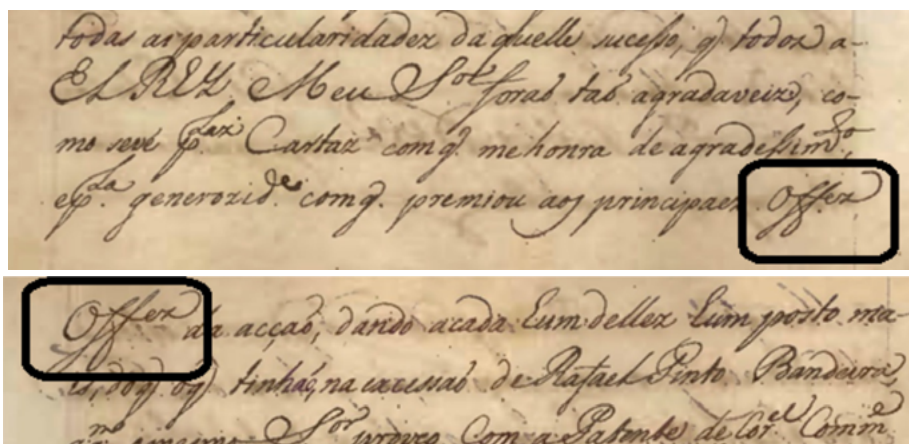 todas as particularidadez daquelle sucesso, q̃ todoz a-
El REY Meu S.or foraõ taõ agradaveiz, co-
mo sevê p.laz Cartaz com q̃. mehonra de agradessim.to,
e p.la generozid.e com q̃. premiou aos principaez Offez
Offez da acçaõ, dando acada hum dellez hum posto ma-
is, doq̃ oq̃ tinhaõ, na excessaõ de Rafael Pinto Bandeira,
S.or proveo Com a Patente de Cor.el Comm.e